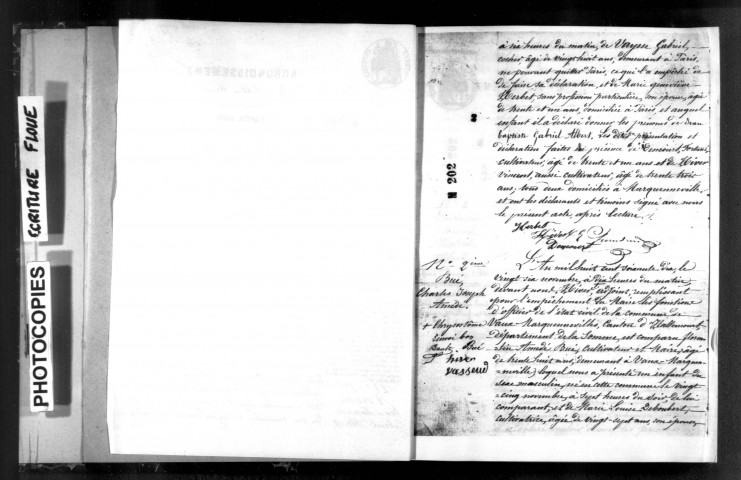 à six heures du matin, de Vaysse Gabriel,
cocher âgé de vingt huit ans, demeurant à Paris,
ne pouvant quitter Paris, ce qui l'a empêché de
de faire sa déclaration, et de Marie Geneviève
Herbet, sans profession particulière, son épouse, âgée
de trente et un ans, domiciliée à Paris, et auquel
enfant il a déclaré donner les prénoms de Jean
Baptiste Gabriel Albert. Les dites présentation et
déclaration faites en présence de
cultivateur, âgé de trente et un ans et de Hiver
Vincent, aussi cultivateur, âgé de trente trois
ans, tous deux domiciliés à Marquenneville,
et ont les déclarants et témoins signé avec nous
le présent acte, après lecture.
Herbet
Hiver
N° 2ème
Bué
Charles Joseph
Amédé
L'An mil huit cent soixante dix, le
vingt six novembre, à dix heures du matin,
devant nous, Hiver, adjoint, remplissant
pour l'empêchement du Maire les fonctions
d'officier de l'état civil de la commune de
Vaux Marquenneville, Canton d'Hallencourt,
Département de la Somme, est comparu
Amédé Bué, cultivateur et Maire, âgé
de trente huit ans, demeurant à Vaux-Marquen
-neville; lequel nous a présenté un enfant du
sexe masculin, né en cette commune le vingt
-cinq novembre, à sept heures du soir, de lui
comparant, et de Marie Louise
cultivatrice, âgée de vingt-sept ans, son épouse,
N 202
ECRITURE FLOUE
PHOTOCOPIES